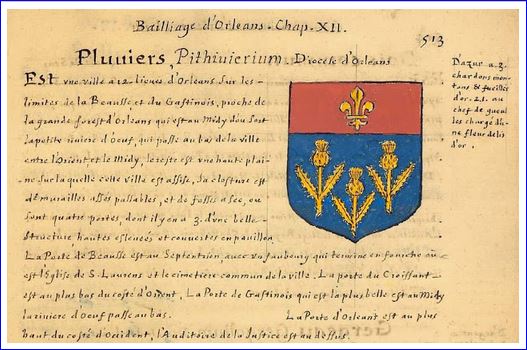 Bailliage d'Orleans. Chap. XII.
513
Pluuiers, Pithiuierium, Diocese d'Orleans
Est vne ville a 12 lieues d'Orleans sur les
limites de la Beausse et du Gastinois, proche de
la grande forest d'Orleans qui est au Midy d'ou sort
la petite riuiere d'Oeuf, qui passe au bas de la ville
entre l'Orient et le Midy, le reste est vne haute plai-
ne sur laquelle cette ville est assise, sa closture est
de murailles assés passables, et de fossés a sec, ou
sont quatre portes, dont il y en a 3. d'vne belle
structure, hautes esleuées et couuertes en pauillon
La Porte de Beausse est au Septentrion, auec vn faubourg qui termine en fouriche ou
est l'Eglise de S. Laurens et le cimetiere commun de la ville. La porte du Croissant
est au plus bas du costé d'Orient, La Porte de Gastinois qui est la plus belle est au Midy
la riuiere d'Oeuf passe au bas. La Porte d'Orleant est au plus
haut du costé d'Occident, l'Auditoire de la Justice est au dessus.
D'azur a 3.
chardons mon-
tans & fueillés
d'or. 2.1. au
chef de gueul
les chargé d'u-
ne fleur de lis
d'or.